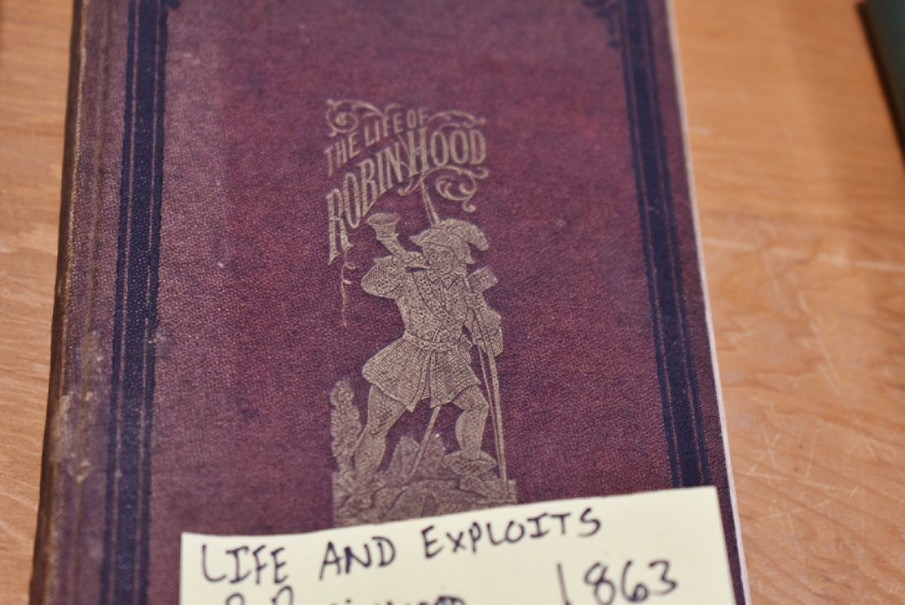 THE LIFE OF
ROBIN HOOD
LIFE AND EXPLOITS
1863